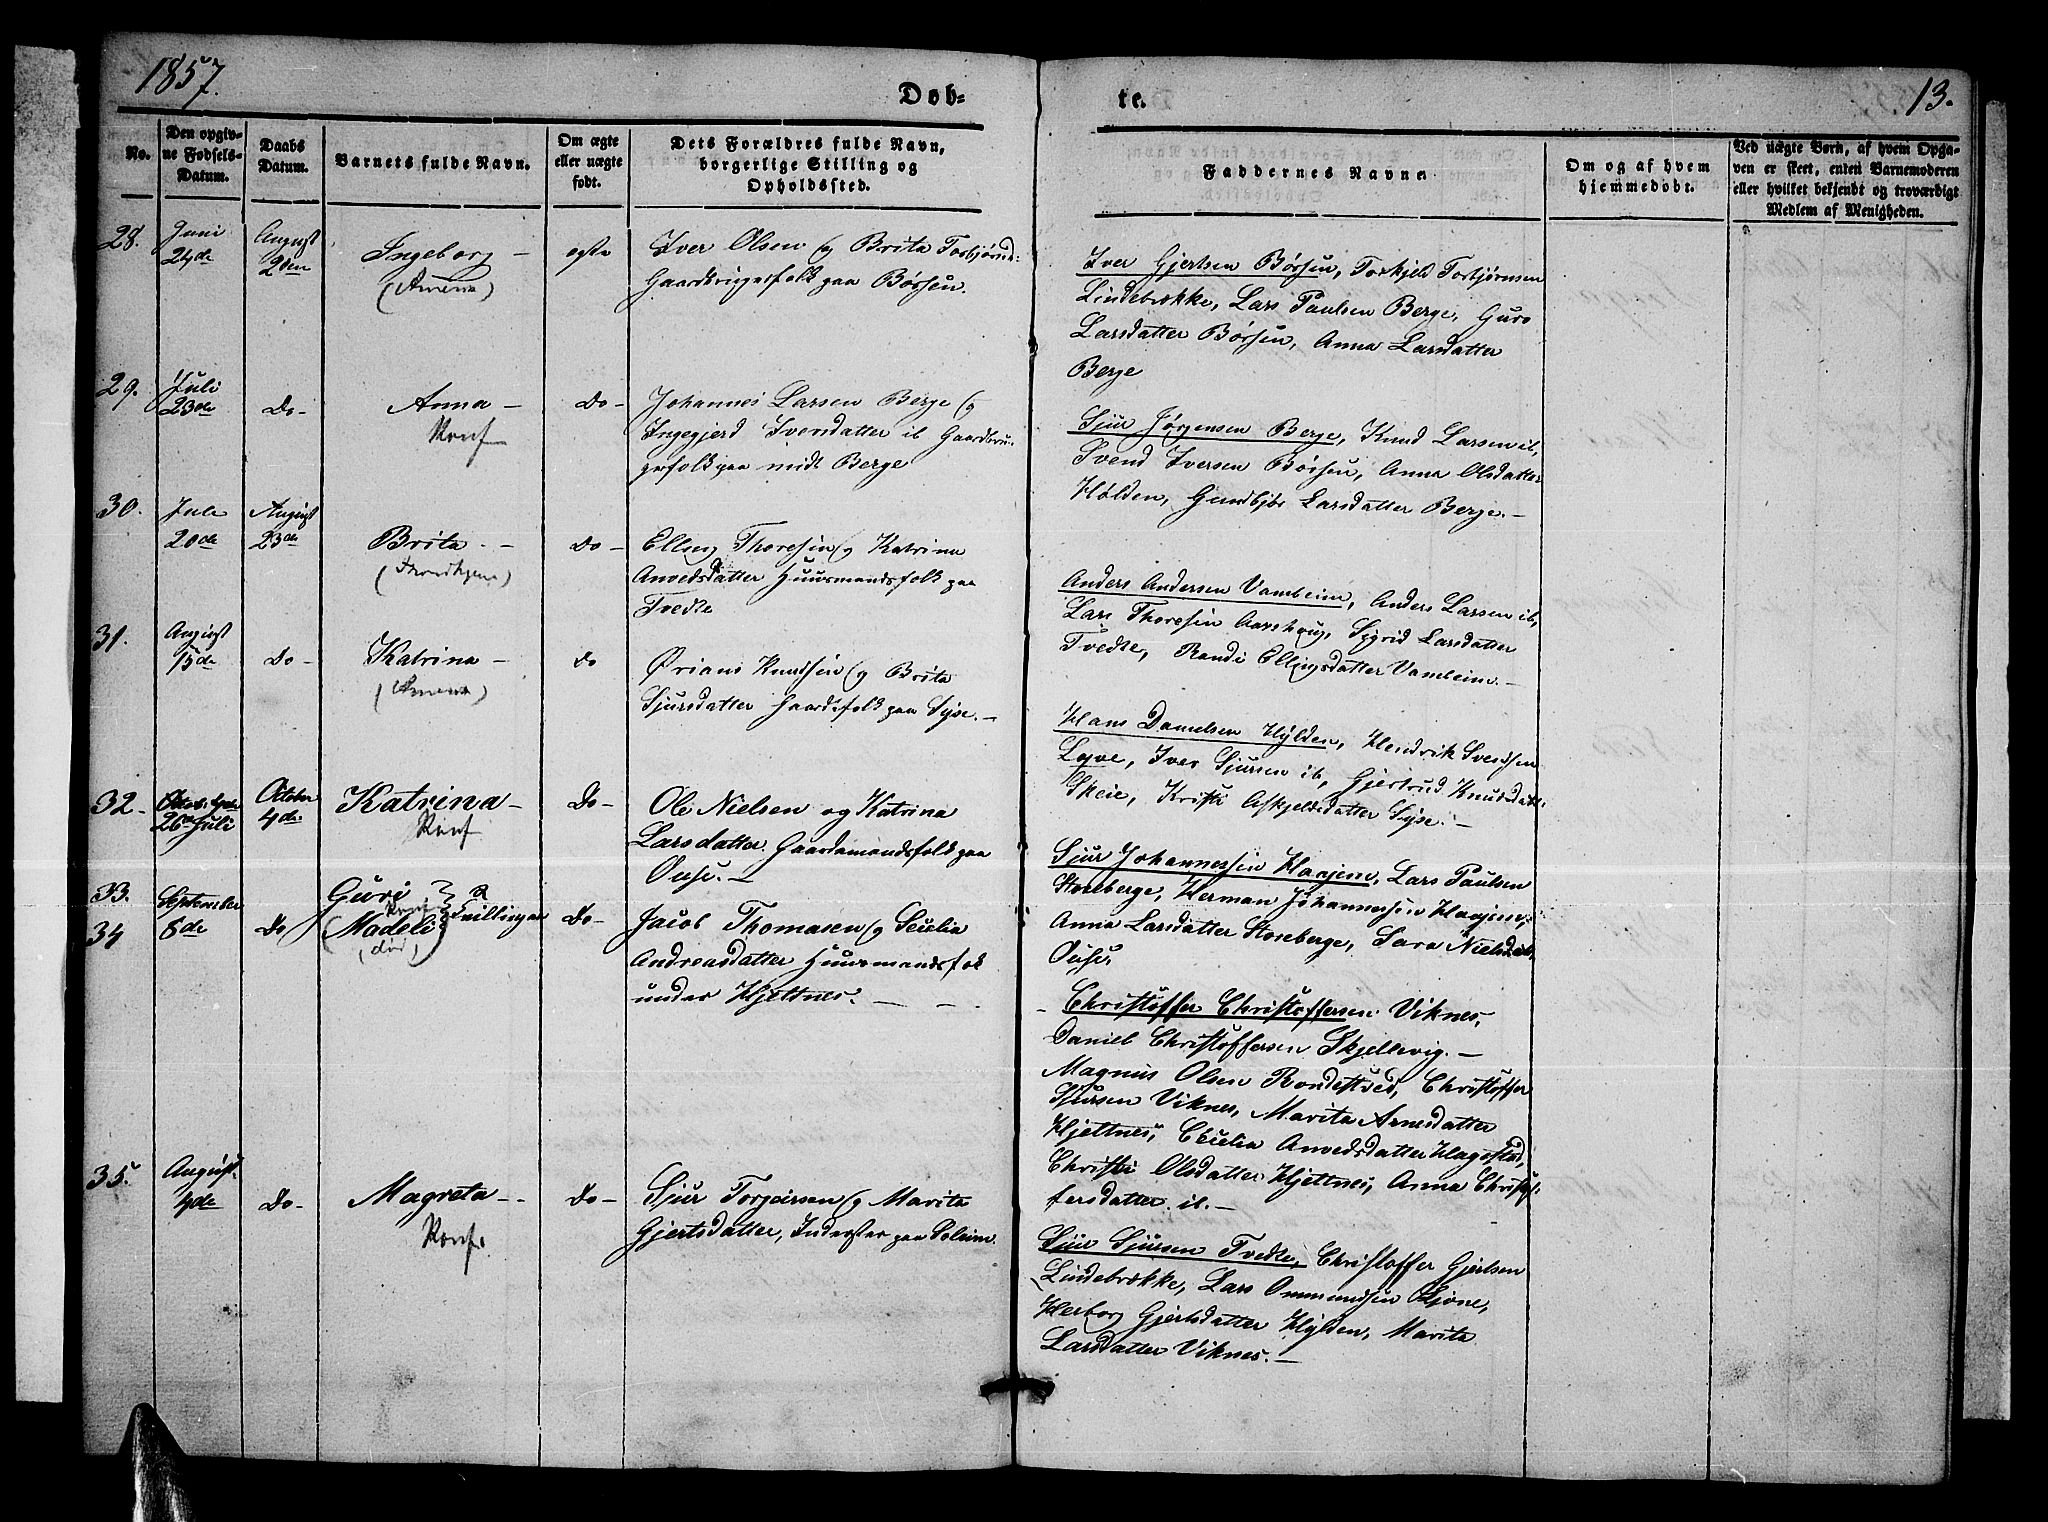 1857.
Døb-
te.
13.
No.
Den opgiv-
ne Fødsels-
Datum.
Daabs
Datum.
Barnets fulde Navn.
Om ægte
eller uægte
født.
Dets Forældres fulde Navn,
borgerlige Stilling og
Opholdssted.
Faddernes Navne
Om og af hvem
hjemmedøbt.
Ved uægte Børn, af hvem Opga-
ven er skeet, enten Barnemoderen
eller hvilket bekjendt og troværdigt
Medlem af Menigheden.
28.
Juni
24de
August
2den
Ingeborg -
(Amena)
egte
Iver Olsen og Brita Torbjørnsd.
Gaardbrugerfolk paa Børsen.
Iver Gjertsen Børsen, Torkjeld Torbjørnsen
Lindebrække, Lars Paulsen Berge, Guro
Larsdatter Børsen, Anna Larsdatter
Berge
29.
Juli
23de
Do-
Anna -
Konf
Do-
Johannes Larsen Berge og
Ingegjerd Iversdatter ib Gaardbru-
gerfolk paa midt Berge
Sjur Jørgensen Berge, Knud Larsen ib,
Svend Iversen Børsen, Anna Olsdatter
Hølden, Gundbjør Larsdatter Berge.-
30.
Juli
20de
August
23de
Brita. -
Do-
Elling Thoresen og Katrina
Anvedsdatter Huusmandsfolk paa
Tvedte
Anders Andersen Vambeim, Anders Larsen ib,
Lars Thoresen Aarshoug, Sygrid Larsdatter
Tvedte, Randi Ellingsdatter Vambeim.-
31.
August
15de
Do-
Katrina -
(Amena)
Do
Ørians Knudsen og Brita
Sjursdatter Gaardsfolk paa Syse.-
Hans Danielsen Hylden, Hendrik Svendsen
Lyve, Iver Sjursen ib, Gjertrud Knudsdatt:
Skeie, Kristi Askjeldsdatter Syse.-
32.-
26de Juli
October
4de
Katrina -
Konf
Do-
Ole Nielsen og Katrina
Larsdatter. Gaardmandsfolk paa
Ouse.-
Sjur Johannessen Haajem, Lars Paulsen
Storeberge, Herman Johannessen Haajem,
Anna Larsdatter Storeberge, Sara Nielsdatt,
Ouse.
33.
34
September
8de
Do
Guri
Konf
(Madeli
(død)
Tvillinger
Do-
Jacob Thomasen og Secelia
Andreasdatter Huusmandsfolk
under Hjeltnes.- - -
- Christoffer Christoffersen Viknes,
Daniel Christoffersen Skjellevig.-
Magnus Olsen Rondestved, Christoffer
Sjursen Viknes, Marita Arnesdatter
Hjeltnes, Cecelia Anvedsdatter Hagestad,
Christi Olsdatter Hjeltnes, Anna Christof-
fersdatter ib.-
35.
August
4de
Do-
Magreta --
Konf.
Do-
Sjur Torgeirsen og Marita
Gjertsdatter, Inderster paa Soleim
Sjur Sjursen Tvedte, Christoffer Gjertsen
Lindebrække, Lars Ommundsen Djøne,
Herborg Gjertsdatter Hylden, Marita
Larsdatter Viknes.-